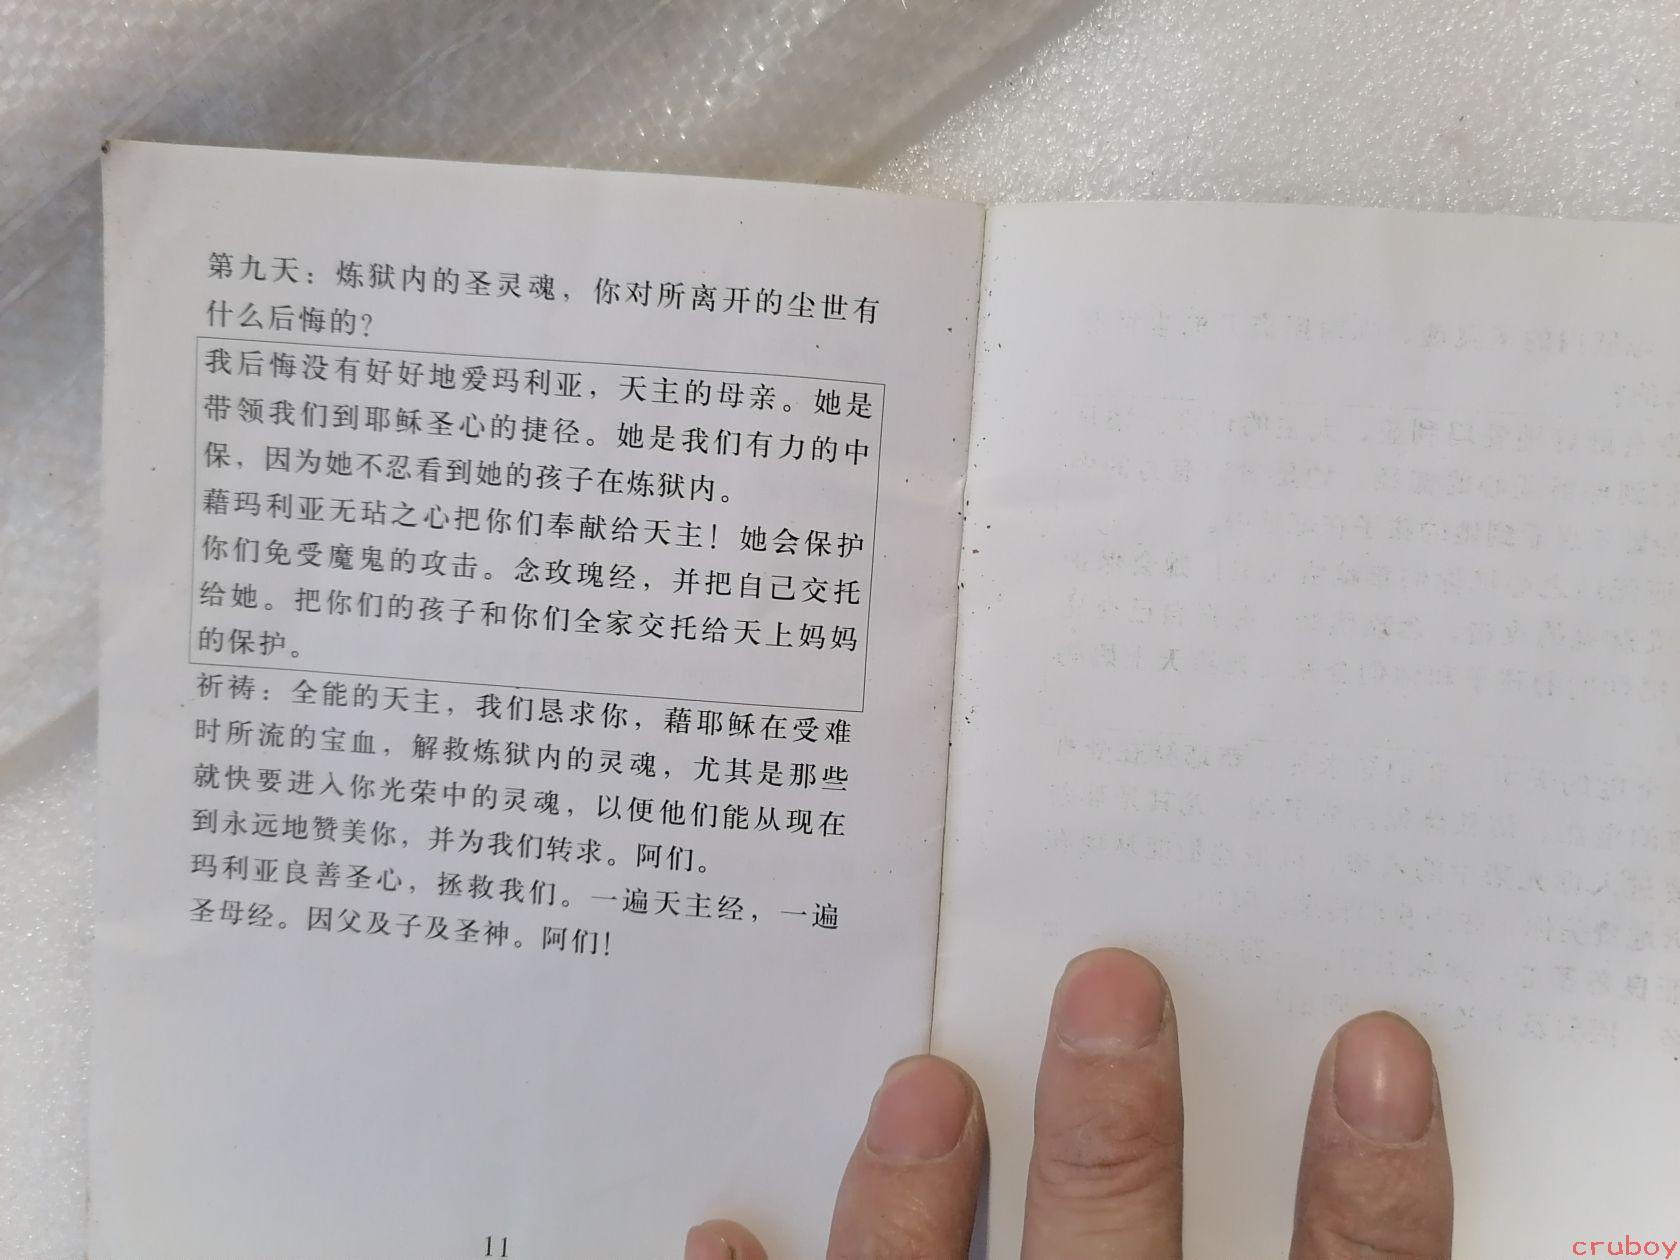 第九天：炼狱内的圣灵魂，你对所离开的尘世有
什么后悔的？
我后悔没有好好地爱玛利亚，天主的母亲。她是
带领我们到耶稣圣心的捷径。她是我们有力的中
保，因为她不忍看到她的孩子在炼狱内。
藉玛利亚无玷之心把你们奉献给天主！她会保护
你们免受魔鬼的攻击。念玫瑰经，并把自己交托
给她。把你们的孩子和你们全家交托给天上妈妈
的保护。
祈祷：全能的天主，我们恳求你，藉耶稣在受难
时所流的宝血，解救炼狱内的灵魂，尤其是那些
就快要进入你光荣中的灵魂，以便他们能从现在
到永远地赞美你，并为我们转求。阿们。
玛利亚良善圣心，拯救我们。一遍天主经，一遍
圣母经。因父及子及圣神。阿们！
11
cruboy